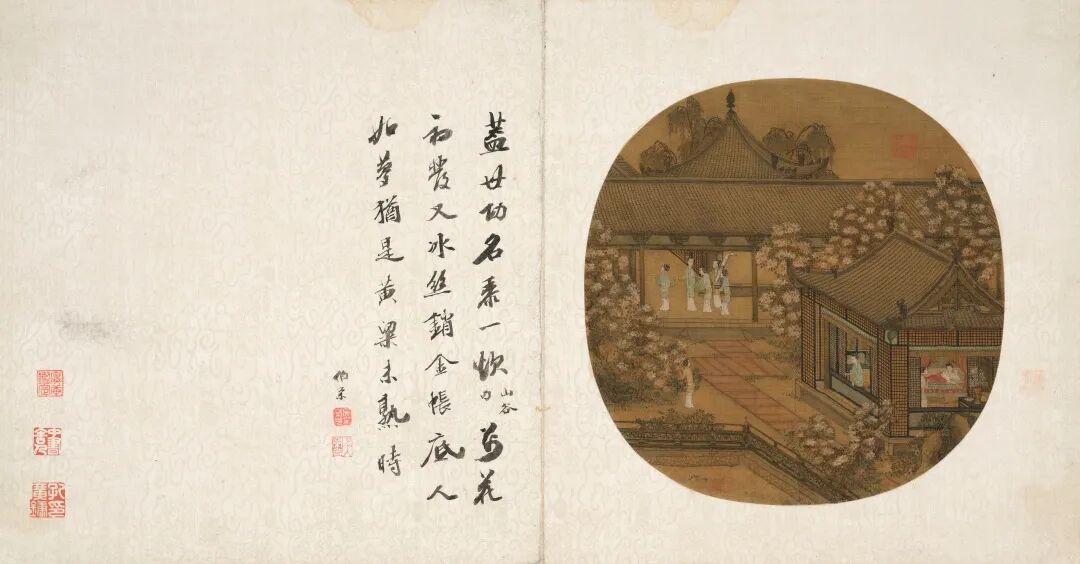 蓋世功名黍一炊山谷句花
初發又冰絲銷金帳底人
如夢猶是黃粱未熟時